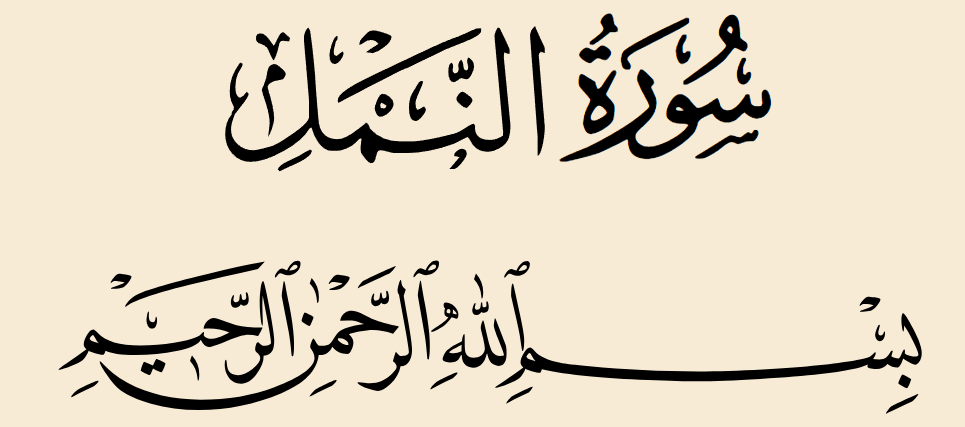 سُورَةُ النَّمْلِ
بِسْمِ ٱللَّهِ ٱلرَّحْمَٰنِ ٱلرَّحِيمِ